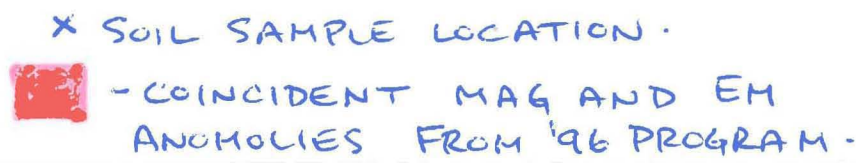 × SOIL SAMPLE LOCATION.
- COINCIDENT MAG AND EM
ANOMOLIES FROM '96 PROGRAM.